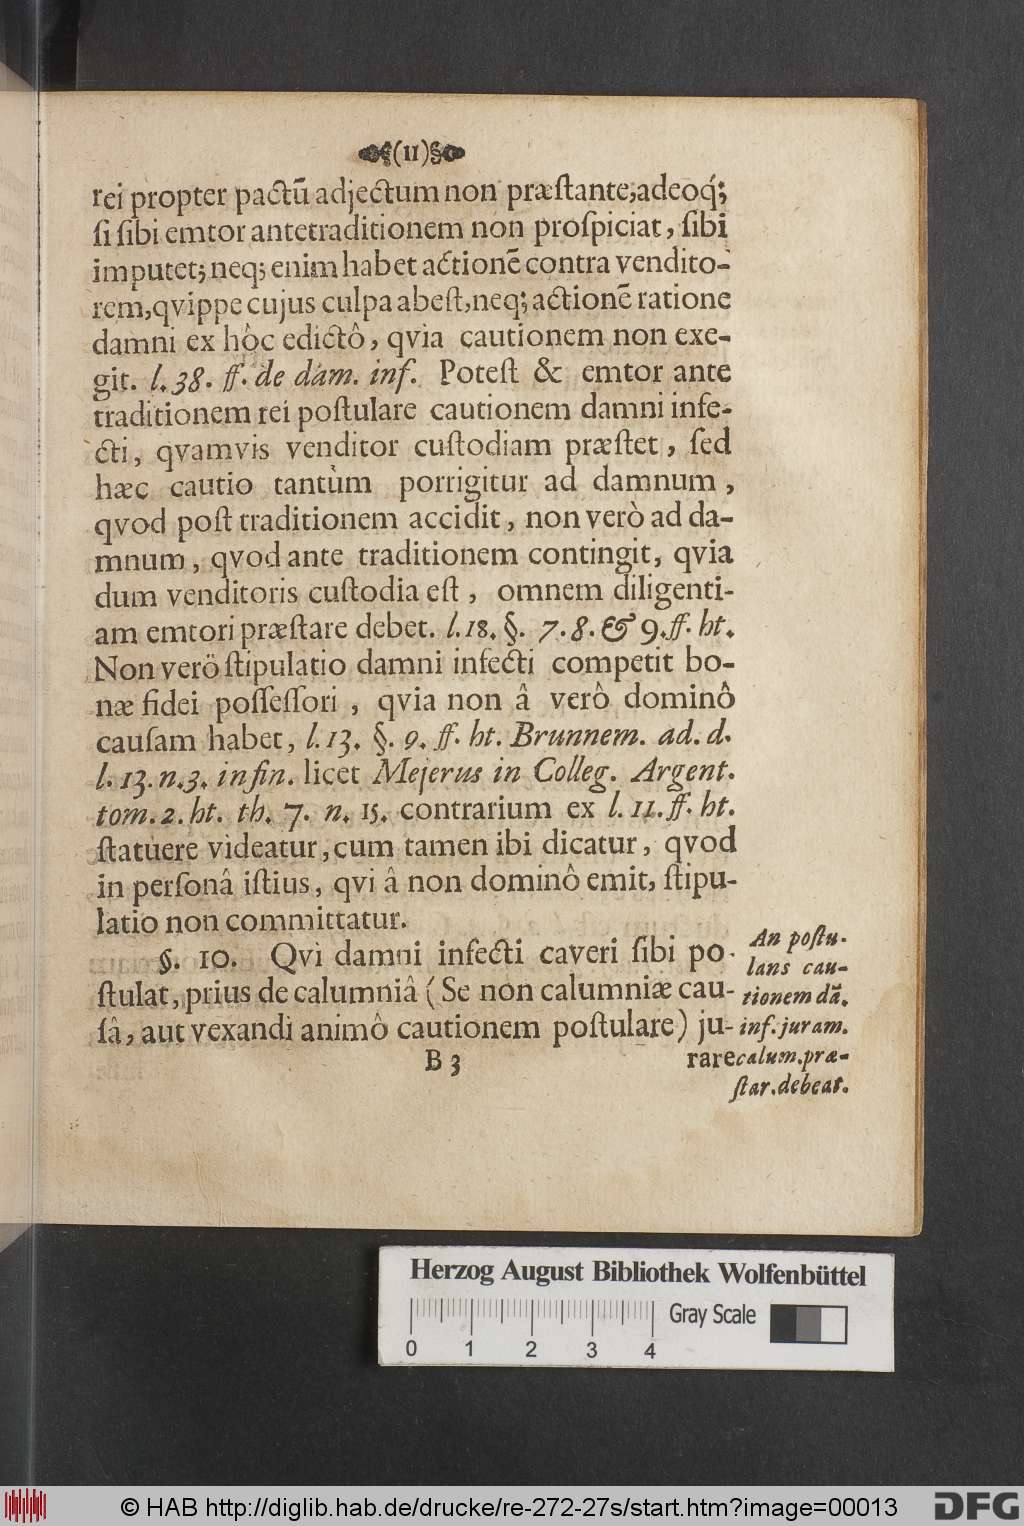 (11)
rei propter pactū adjectum non præſtante; adeoq́;
ſi ſibi emtor ante traditionem non proſpiciat, ſibi
imputet; neq; enim habet actionē contra vendito-
rem, qvippe cujus culpa abeſt, neq; actionē ratione
damni ex hôc edictô, qvia cautionem non exe-
git. l. 38. ff. de dam. inf. Poteſt & emtor ante
traditionem rei poſtulare cautionem damni infe-
cti, qvamvis venditor cuſtodiam præſtet, ſed
hæc cautio tantùm porrigitur ad damnum,
qvod poſt traditionem accidit, non verò ad da-
mnum, qvod ante traditionem contingit, qvia
dum venditoris cuſtodia eſt, omnem diligenti-
am emtori præſtare debet. l. 18. §. 7. 8. & 9. ff. ht.
Non verö ſtipulatio damni infecti competit bo-
næ fidei poſſeſſori, qvia non â verô dominô
cauſam habet, l. 13. §. 9. ff. ht. Brunnem. ad. d.
l. 13. n. 3. in fin. licet Mejerus in Colleg. Argent.
tom. 2. ht. th. 7. n. 15. contrarium ex l. 11. ff. ht.
ſtatuere videatur, cum tamen ibi dicatur, qvod
in perſonâ iſtius, qvi â non dominô emit, ſtipu-
latio non committatur.
§. 10. Qvi damni infecti caveri ſibi po-
ſtulat, prius de calumniâ (Se non calumniæ cau-
ſâ, aut vexandi animô cautionem poſtulare) ju-
B 3
rare
An poſtu-
lans cau-
tionem dā.
inf. juram.
calum. præ-
ſtar. debeat.
Herzog August Bibliothek Wolfenbüttel
Gray Scale
0 1 2 3 4
© HAB http://diglib.hab.de/drucke/re-272-27s/start.htm?image=00013
DFG